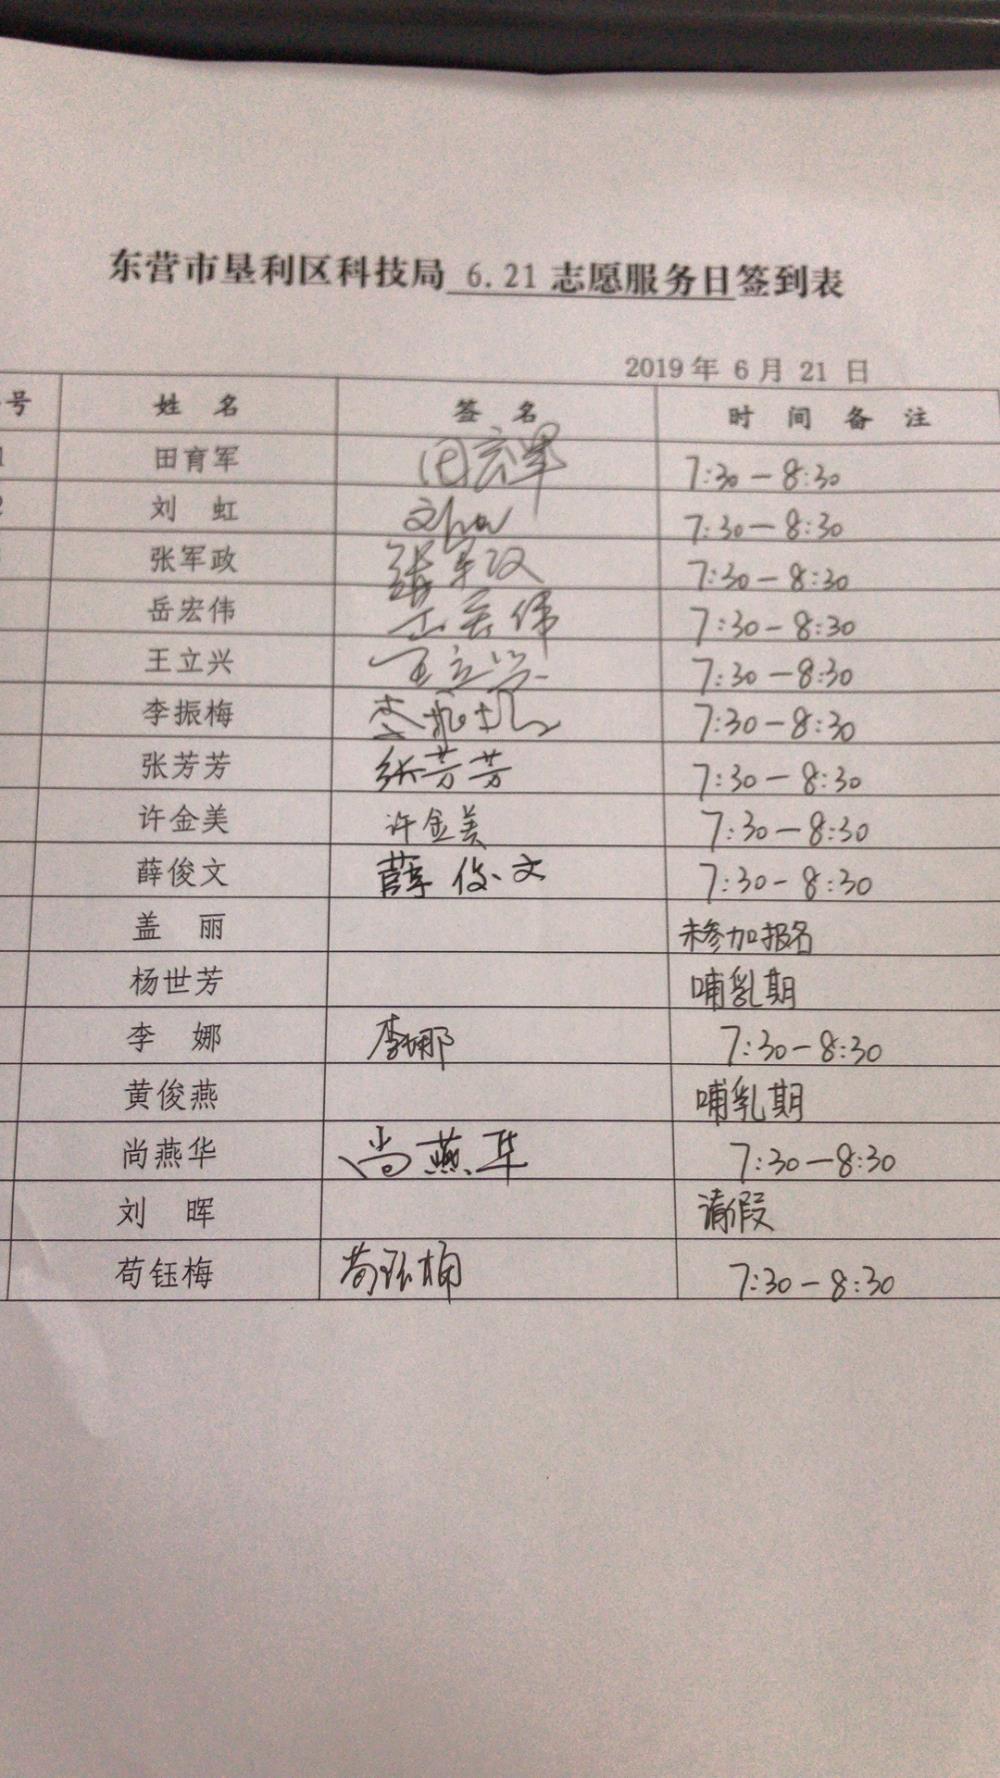 东营市垦利区科技局 6.21 志愿服务日签到表
2019 年 6 月 21 日
号 姓 名 签 名 时 间 备 注
1 田育军 7:30-8:30
2 刘 虹 7:30-8:30
张军政 张军政 7:30-8:30
岳宏伟 岳宏伟 7:30-8:30
王立兴 王立兴 7:30-8:30
李振梅 李振梅 7:30-8:30
张芳芳 张芳芳 7:30-8:30
许金美 许金美 7:30-8:30
薛俊文 薛俊文 7:30-8:30
盖 丽 未参加报名
杨世芳 哺乳期
李 娜 李娜 7:30-8:30
黄俊燕 哺乳期
尚燕华 尚燕华 7:30-8:30
刘 晖 请假
苟钰梅 苟钰梅 7:30-8:30